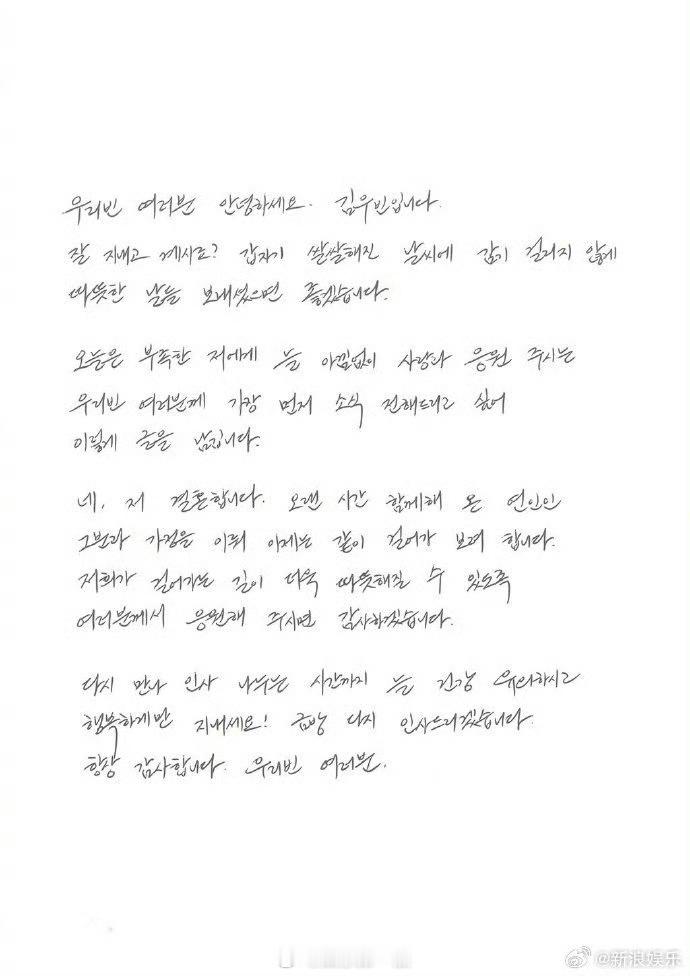 우리빈 여러분 안녕하세요. 김우빈입니다.
잘 지내고 계시죠? 갑자기 쌀쌀해진 날씨에 감기 걸리지 않게
따뜻한 날들 보내셨으면 좋겠습니다.
오늘은 부족한 저에게 늘 아낌없이 사랑과 응원 주시는
우리빈 여러분께 가장 먼저 소식 전해드리고 싶어
이렇게 글을 남깁니다.
네, 저 결혼합니다. 오랜 시간 함께해 온 연인인
그분과 가정을 이뤄 이제는 같이 걸어가 보려 합니다.
저희가 걸어가는 길이 더욱 따뜻해질 수 있도록
여러분께서 응원해 주시면 감사하겠습니다.
다시 만나 인사 나누는 시간까지 늘 건강 유의하시고
행복하게만 지내세요! 금방 다시 인사드리겠습니다.
항상 감사합니다. 우리빈 여러분.
@新浪娱乐